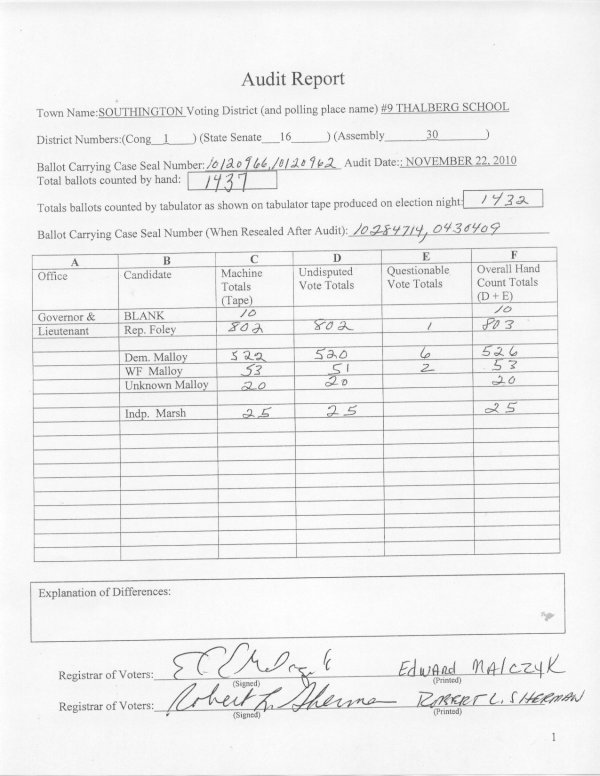 Audit Report
Town Name:SOUTHINGTON Voting District (and polling place name) #9 THALBERG SCHOOL
District Numbers:(Cong 1 ) (State Senate 16 ) (Assembly 30 )
Ballot Carrying Case Seal Number: 10120966,10120962 Audit Date:: NOVEMBER 22, 2010
Total ballots counted by hand: 1437
Totals ballots counted by tabulator as shown on tabulator tape produced on election night: 1432
Ballot Carrying Case Seal Number (When Resealed After Audit): 10284714, 0430409
A B C D E F
Office Candidate Machine Undisputed Questionable Overall Hand
Totals Vote Totals Vote Totals Count Totals
(Tape) (D + E)
Governor & BLANK 10 10
Lieutenant Rep. Foley 802 802 1 803
Dem. Malloy 522 520 6 526
WF Malloy 53 51 2 53
Unknown Malloy 20 20 20
Indp. Marsh 25 25 25
Explanation of Differences:
Registrar of Voters: EDWARD MALCZYK
(Signed) (Printed)
Registrar of Voters: Robert L. Sherman ROBERT L. SHERMAN
(Signed) (Printed)
1